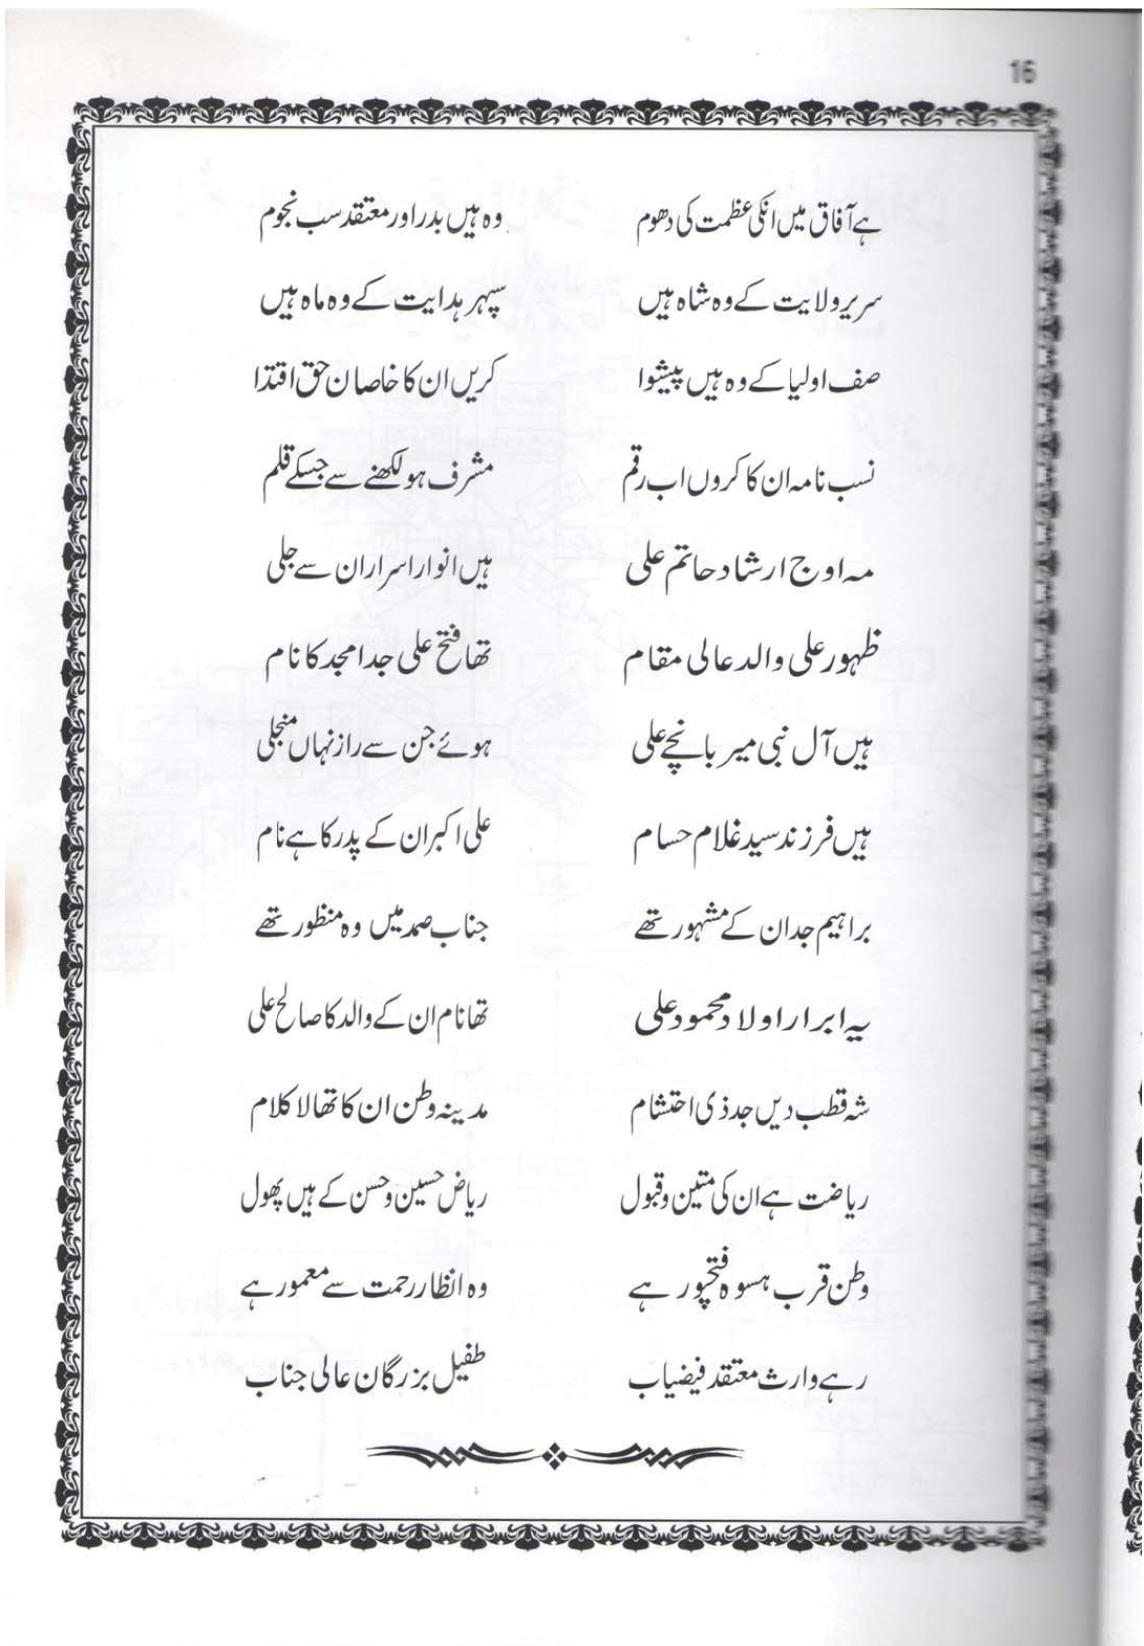 16
ہے آفاق میں انکی عظمت کی دھوم وہ ہیں بدر اور معتقد سب نجوم
سریر ولایت کے وہ شاہ ہیں سپہر ہدایت کے وہ ماہ ہیں
صف اولیا کے وہ ہیں پیشوا کریں ان کا خاصان حق اقتدا
نسب نامہ ان کا کروں اب رقم مشرف ہو لکھنے سے جسکے قلم
مہ اوج ارشاد حاتم علی ہیں انوار اسرار ان سے جلی
ظہور علی والد عالی مقام تھا فتح علی جد امجد کا نام
ہیں آل نبی میر بانچے علی ہوئے جن سے راز نہاں منجلی
ہیں فرزند سید غلام حسام علی اکبر ان کے پدر کا ہے نام
براہیم جد ان کے مشہور تھے جناب صمد میں وہ منظور تھے
یہ ابرار اولاد محمود علی تھا نام ان کے والد کا صالح علی
شہ قطب دیں جد ذی احتشام مدینہ وطن ان کا تھا لا کلام
ریاضت ہے ان کی متین و قبول ریاض حسین و حسن کے ہیں پھول
وطن قرب ہسوہ فتحپور ہے وہ انظار رحمت سے معمور ہے
رہے وارث معتقد فیضیاب طفیل بزرگان عالی جناب